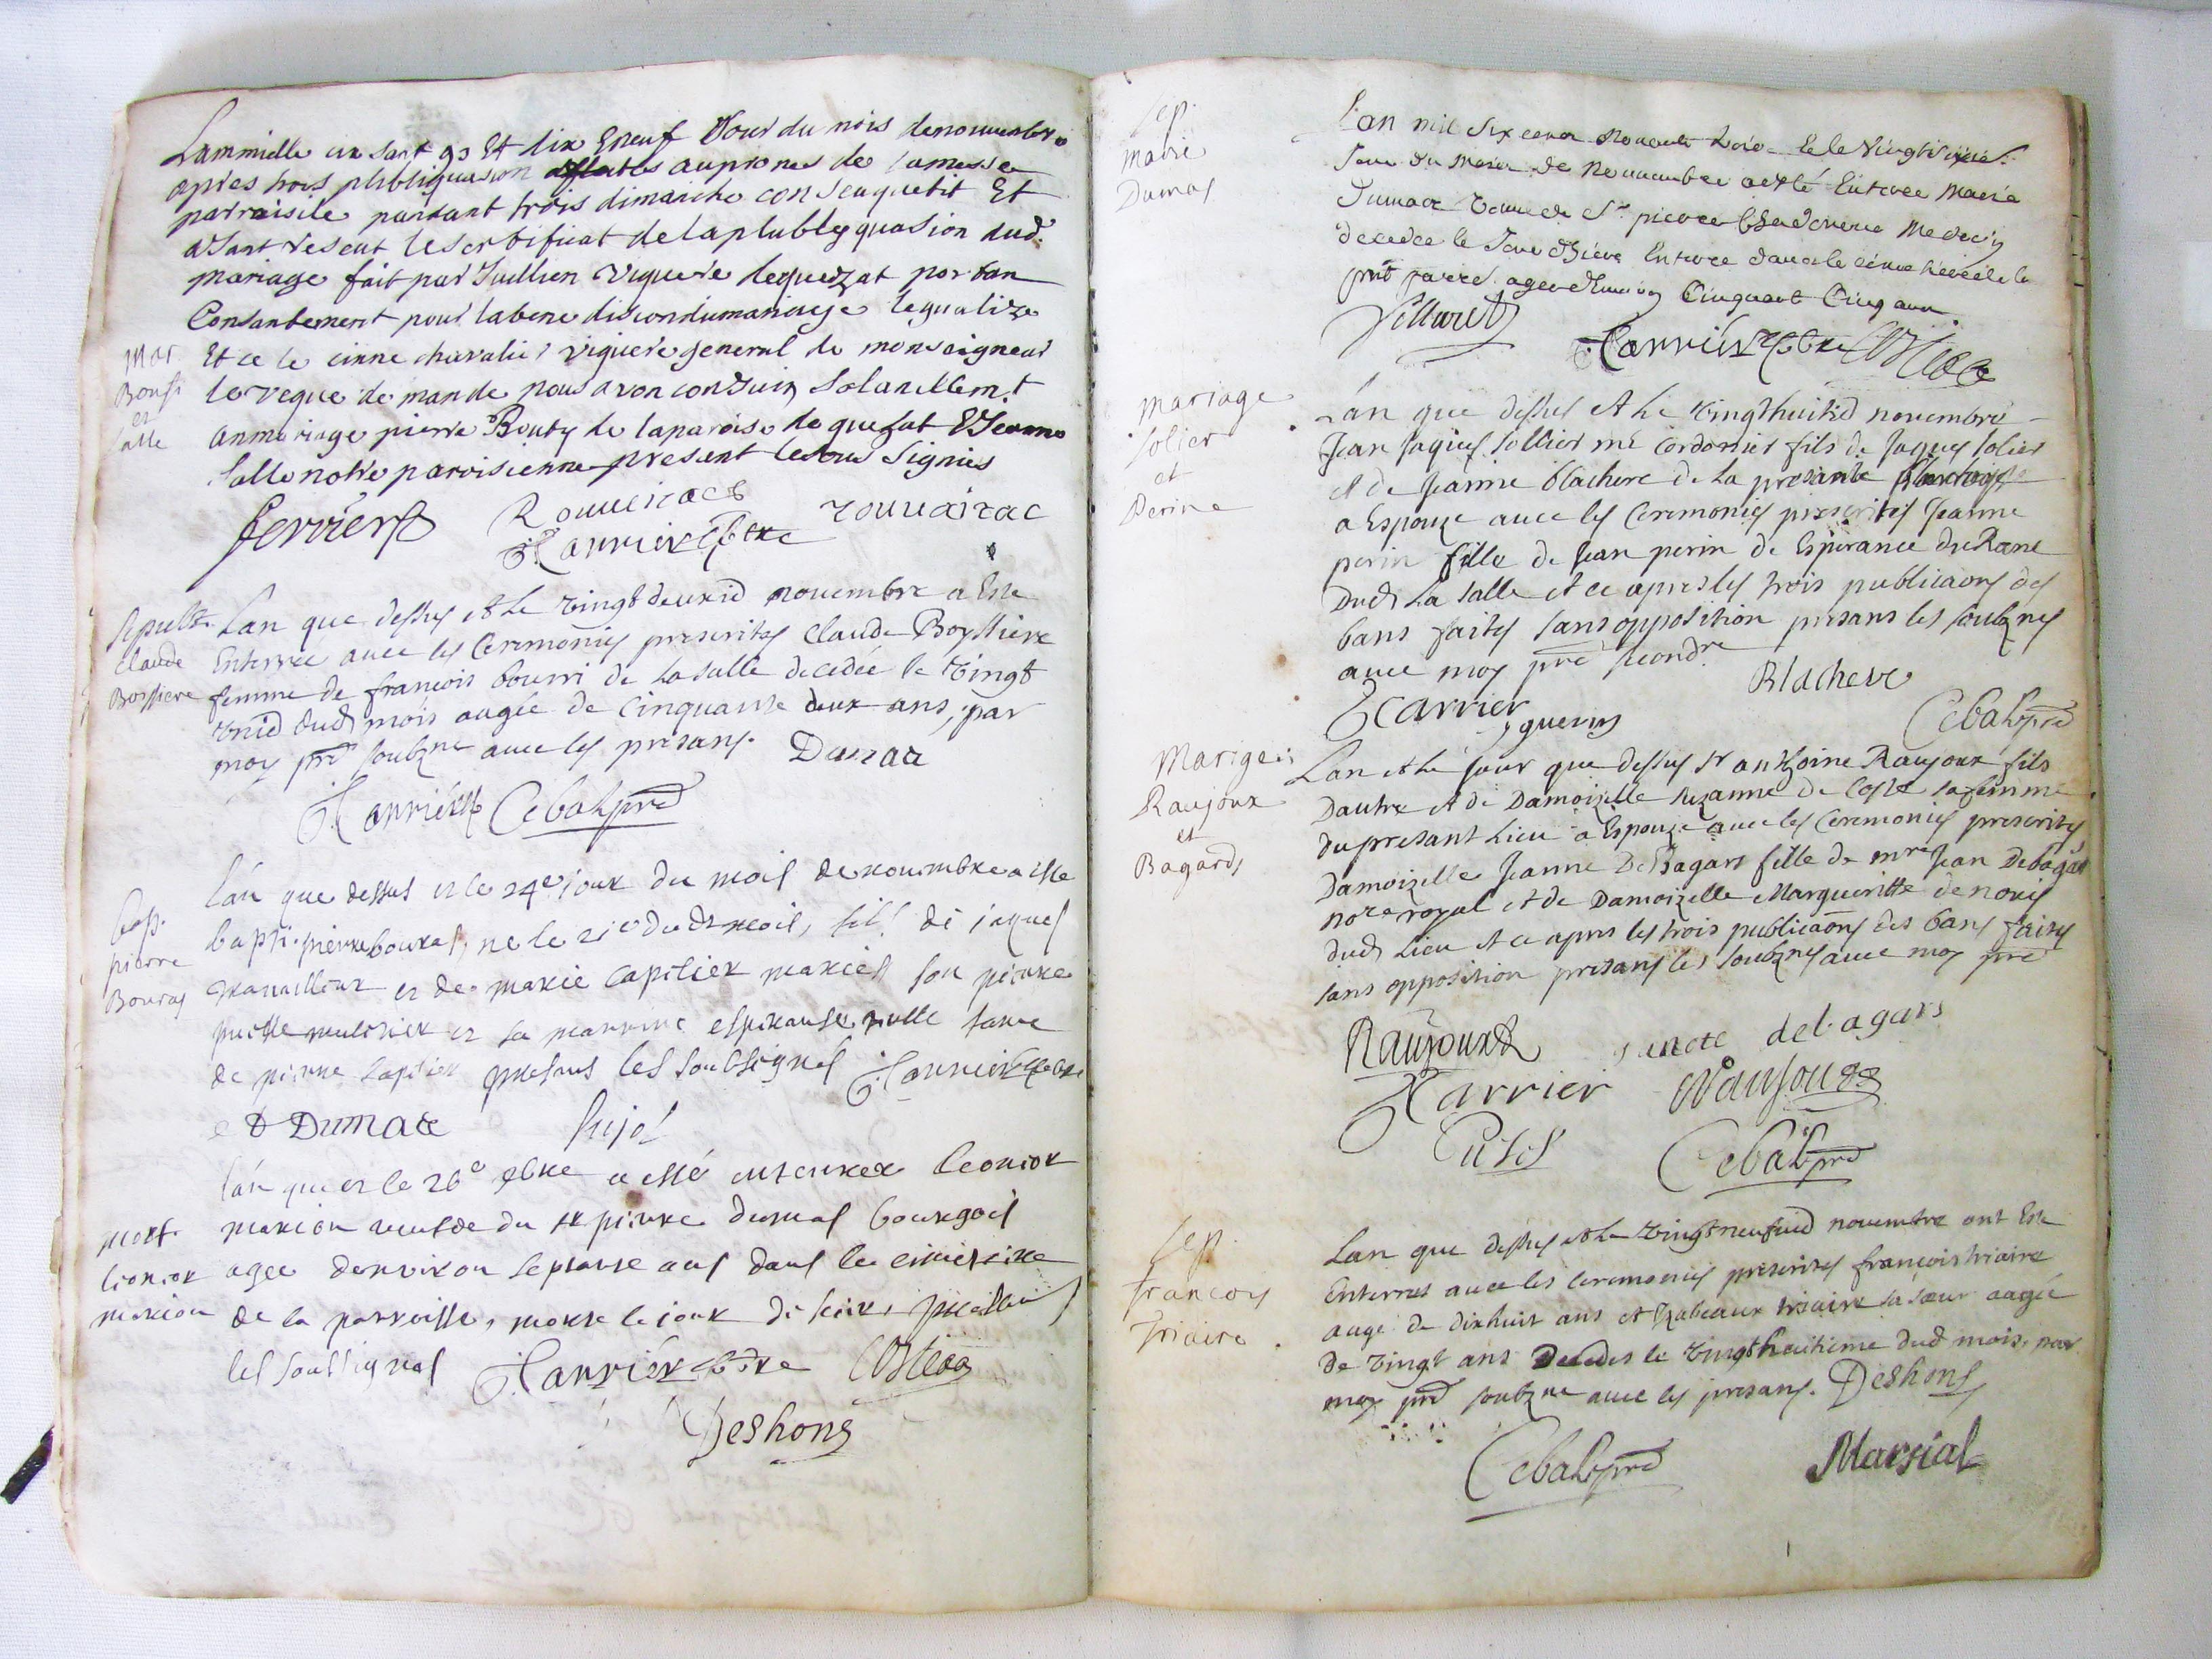 Lammille cix sant 93 Et dix Eneuf Jour du mois denouembre
apres trois plubliquasion auprones de lamesse
parroisile pandant trois dimanche consequetit Et
aiant veseut lesertifiuat delaplubleyquasion dud
mariage fait par Juillien viguere dequezat portan
Consantement pour labene disiondumariage
Mar
Bouti
et
salle
Et ce le chavalier viguere general de monseigneur
leveque de mande nous avon conjuin Solanellemt
anmariage pierre Bouty de laparoise de quesat EtJeanne
salle notre paroisienne present lessous signies
ferriere
Rouveirac
rouvairac
Carrier ptre
Sepult.
Claude
Boissiere
Lan que dessus et le vingt deuxie novembre a Este
Enterree avec les Ceremonies prescrites Claude Boyssiere
femme de francois bourri de Lasalle decedée le vingt
unie dud mois aagée de Cinquante deux ans, par
moy pre soubzne avec les presans.
Dumas
Carrier
Cebal pre
bap.
pierre
Bouras
l'an que dessus et le 24e jour du mois de nouembre a este
baptise pierre bouras, ne le 21e dud mois, fils de jaques
travailleur et de marie Capelier mariés son pieure
et sa marrine esperanse fame
de pierre presans les soubsignes Carrier ptre
Dumas
Pujol
l'an que et le 26e 9bre a esté enterree leonior
mort.
lionior
marion
marion veufve du sr pierre dumas bourgois
agee denviron septante ans dans le cimetiere
de la parroisse, morte le jour di hier, presans
les soussignes Carrier ptre
Costeo
Deshons
Sep.
marie
Dumas
L'an mil six cens Nonante trois & le vingtsixie
Jour du Mois de Nouuembre aesté Enterree Marie
Dumace veuue de Sr. pierre Medecin
decedee le Jour d'hiere Enterree dans le cimetiere de la
pnt parre. agee d'Enuiron Cinquant Cinq ans
Carrier ptre
mariage
Solier
et
Perine
L'an que dessus et le vingthuitie novembre
Jean Jaques Sollier me Cordonier fils de Jaques Solier
et de Jeanne blachere de La presante
a Espouze avec les Ceremonies prescrites Jeanne
perin fille de Jean perin de Esperance
Dud La Salle et ce apres les trois publicaons des
bans faites sans opposition presans les soubznes
avec moy pre secondre
Blachere
Carrier
yguerin
Cebal pre
Marige
Raujoux
et
Bagards
Lan et le jour que dessus sr anthoine Raujoux fils
Dautre et de Damoizelle Suzanne de Coste sa femme
du presant Lieu a Espouze avec les Ceremonies prescrites
Damoizelle Jeanne De Bagars fille de mre Jean Debagar
nore royal et de Damoizelle Margueritte de novis
dud Lieu et ce apres les trois publicaons des bans faites
sans opposition presans les soubznes avec moy pre
Raujoux
debagars
Carrier
Raujoux
Cebal pre
Sep.
francoy
Triaire
Lan que dessus et le vingtneufuie novembre ont Este
Enterres avec les ceremonies prescrites francois triaire
aagé de dixhuit ans et Izabeaux triaire sa soeur aagée
de vingt ans Decedes le vingthuitieme dud mois, par
moy pre soubzne avec les presans. Deshons
Cebal pre
Marsial